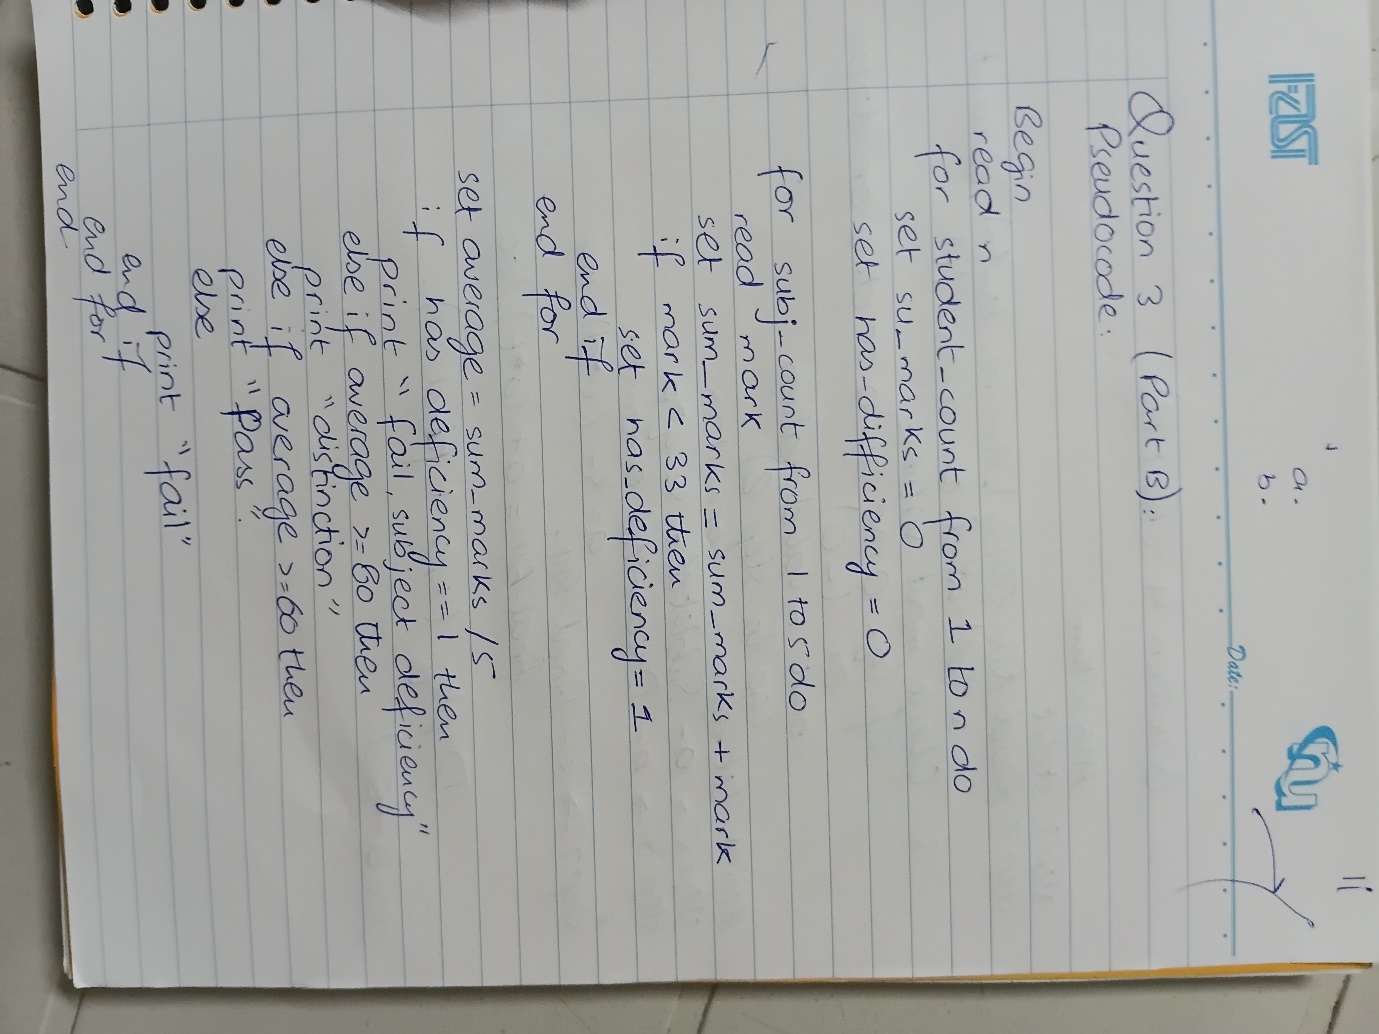 FAST
Date:
a.
b.
Question 3 (Part B):
Pseudocode:
Begin
read n
for student-count from 1 to n do
set su_marks = 0
set has-difficiency = 0
for subj-count from 1 to 5 do
read mark
set sum_marks = sum_marks + mark
if mark < 33 then
set has_deficiency = 1
end if
end for
set average = sum_marks / 5
if has deficiency == 1 then
print "fail, subject deficiency"
else if average >= 80 then
print "distinction"
else if average >= 60 then
print "Pass".
else
print "fail"
end if
end for
end